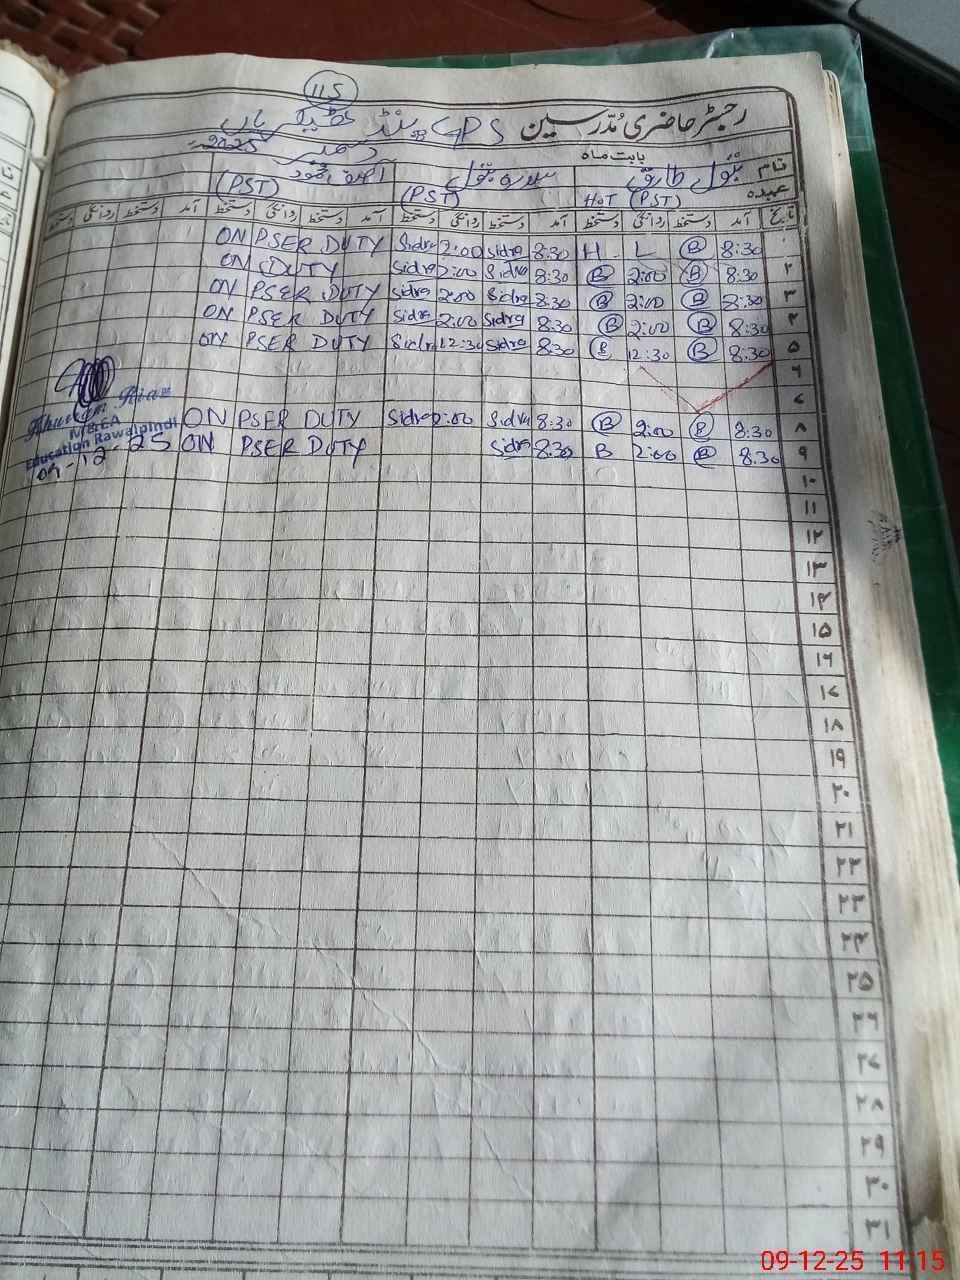 115
رجسٹر حاضری مدرسین GPS پنڈ
بابت ماہ دسمبر 2025
نام بتول طارق سدرہ بتول
عہدہ HOT (PST) (PST) (PST)
تاریخ آمد دستخط روانگی دستخط آمد دستخط روانگی دستخط آمد دستخط روانگی دستخط آمد دستخط روانگی دستخط
۱ 8:30 B L H 8:30 Sidra 2:00 Sidra ON PSER DUTY
۲ 8:30 B 2:00 B 8:30 Sidra 2:00 Sidra ON DUTY
۳ 8:30 B 2:00 B 8:30 Sidra 2:00 Sidra ON PSER DUTY
۴ 8:30 B 2:00 B 8:30 Sidra 2:00 Sidra ON PSER DUTY
۵ 8:30 B 12:30 B 8:30 Sidra 12:30 Sidra ON PSER DUTY
۶
۷
۸ 8:30 B 2:00 B 8:30 Sidra 2:00 Sidra ON PSER DUTY
۹ 8:30 B 2:00 B 8:30 Sidra ON PSER DUTY
Khurram Riaz
MEA
Education Rawalpindi
09-12-25
۱۰
۱۱
۱۲
۱۳
۱۴
۱۵
۱۶
۱۷
۱۸
۱۹
۲۰
۲۱
۲۲
۲۳
۲۴
۲۵
۲۶
۲۷
۲۸
۲۹
۳۰
۳۱
09-12-25 11:15